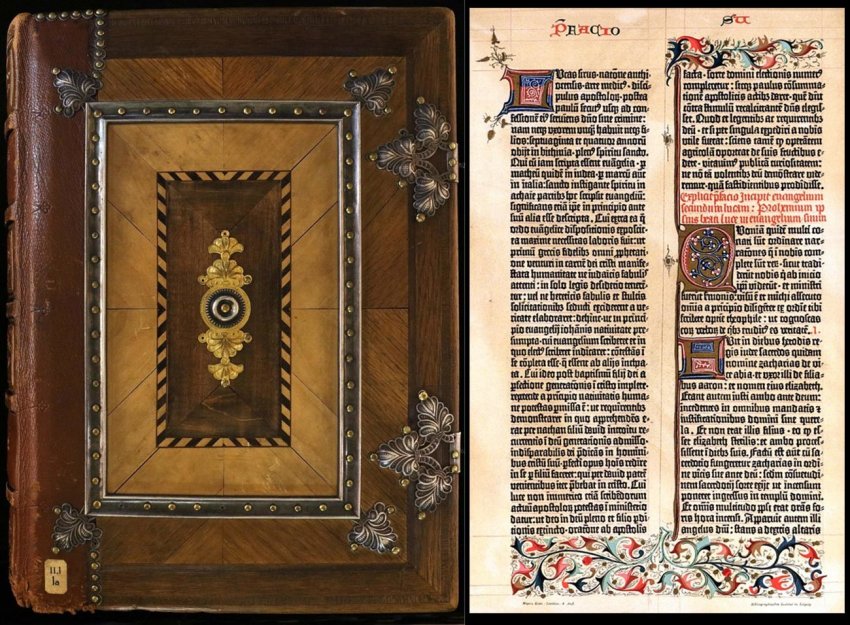 II.1
1a
P̄facio
Su
Lucas sirus· natōne anthi-
ocensis· arte medicꝰ· disci-
pulus apostoloꝝ· postea
paulū secutꝰ usqꝫ ad con-
fessionē eiꝰ serviens dn̄o sine crimine:
nam neqꝫ uxorem unquā habuit neqꝫ fi-
lios: septuaginta et quatuor annorū
obiit in bithinia· plenꝰ spiritu sancto.
Qui cū iam scripta essent euāgelia· p
matheū quidē in iudea· p marcū autē
in italia: sancto instigante spiritu in
achaie partibꝰ hoc scripsit euangeliū:
significans etiā ipē in principio ante
suū alia esse descripta. Cui extra ea q̄
ordo euāgelice dispositionis exposcit·
ea maxime necessitas laboris fuit: ut
primū grecis fidelibꝰ omni pphetati-
one venturi in carnē dei cristi manife-
stata humanitate ne iudaicis fabulis
attenti: in solo legis desiderio tenerē-
tur: vel ne hereticis fabulis et stultis
solicitationibꝰ seducti exciderent a ve-
ritate elaboraret: dehinc· ut in princi-
pio euangelij iohānis nativitate pre-
sumpta· cui euangelium scriberet et in
quo electꝰ scriberet indicaret: cōtestās ī
se cōpleta esse· q̄ essent ab alijs inchoa-
ta. Cui ideo post baptismū filij dei a
pfectione generatōnis ī cristo implete·
repetende a principio nativitatis huma-
ne potestas pmissa ē: ut requirentibꝰ
demonstraret in quo apprehendēs e-
rat per nathan filiū david introitu re-
currentis ī deū generationis admisso·
indisparabilis dei pdicās in homini-
bus cristū suū· pfecti opus hoīs redire
in se p filiū faceret: qui per david patrē
venientibus iter pbebat in cristo. Cui
luce non immerito etiā scribendorum
actuū apostoloꝝ potestas ī ministerio
datur: ut deo in deū pleno et filio pdi-
tionis extincto· oratōe ab apostolis
facta· sorte domini electionis numerꝰ
compleretur: sicqꝫ paulus cōsumma-
tionē apostolicis actibꝫ daret· quē diu
cōtra stimulū recalcitrantē dn̄s elegis-
set. Quod et legentibꝫ ac requirentibꝫ
deū· etsi per singula expediri a nobis
utile fuerat: sciens tamē q̄ operantem
agricolā oporteat de suis fructibus e-
dere· vitavimꝰ publicā curiositatem:
ne nō tā volentibꝫ deū demōstrare vide-
remur· quā fastidientibus prodidisse.
Explicit pfacio Incipit euangelium
secundum lucam: Prohemium ip-
sius beati luce in euangelium suum
Quoniā quidē multi co-
nati sūt ordinare nar-
rationēs q̄ ī nobis com-
plete sūt reꝝ· sicut tradi-
derūt nobis q̄ ab inicio
ipi̅ viderūt· et ministri
fuerūt sermonis: visū ē et michi assecuto
omnia a principio diligēter ex ordīe tibi
scribere optīe theophile: ut cognoscas
eoꝝ verboꝝ de q̇bꝫ eruditꝰ es veritatē. I.
Fuit in diebus herodis re-
gis iudee sacerdos quidam
nomine zacharias de vi-
ce abia· et uxor illi de filia-
bus aaron: et nomen eius elizabeth.
Erant autem iusti ambo ante deum:
incedentes in omnibus mandatis et
iustificationibus domini sine quere-
la. Et non erat illis filius· eo q̄ es-
set elizabeth sterilis: et ambo proces-
sissent ī diebꝫ suis. Factū est autē cū sa-
cerdotio fungeretur zacharias in ordi-
ne vicis sue ante deū: scdm̄ cōsuetudi-
nem sacerdotij sorte exijt ut incensum
poneret ingressus in templū domini.
Et om̄is multitudo ppl̄i erat orās fo-
ris hora incensi. Apparuit autem illi
angelus dn̄i: stans a dextris altaris